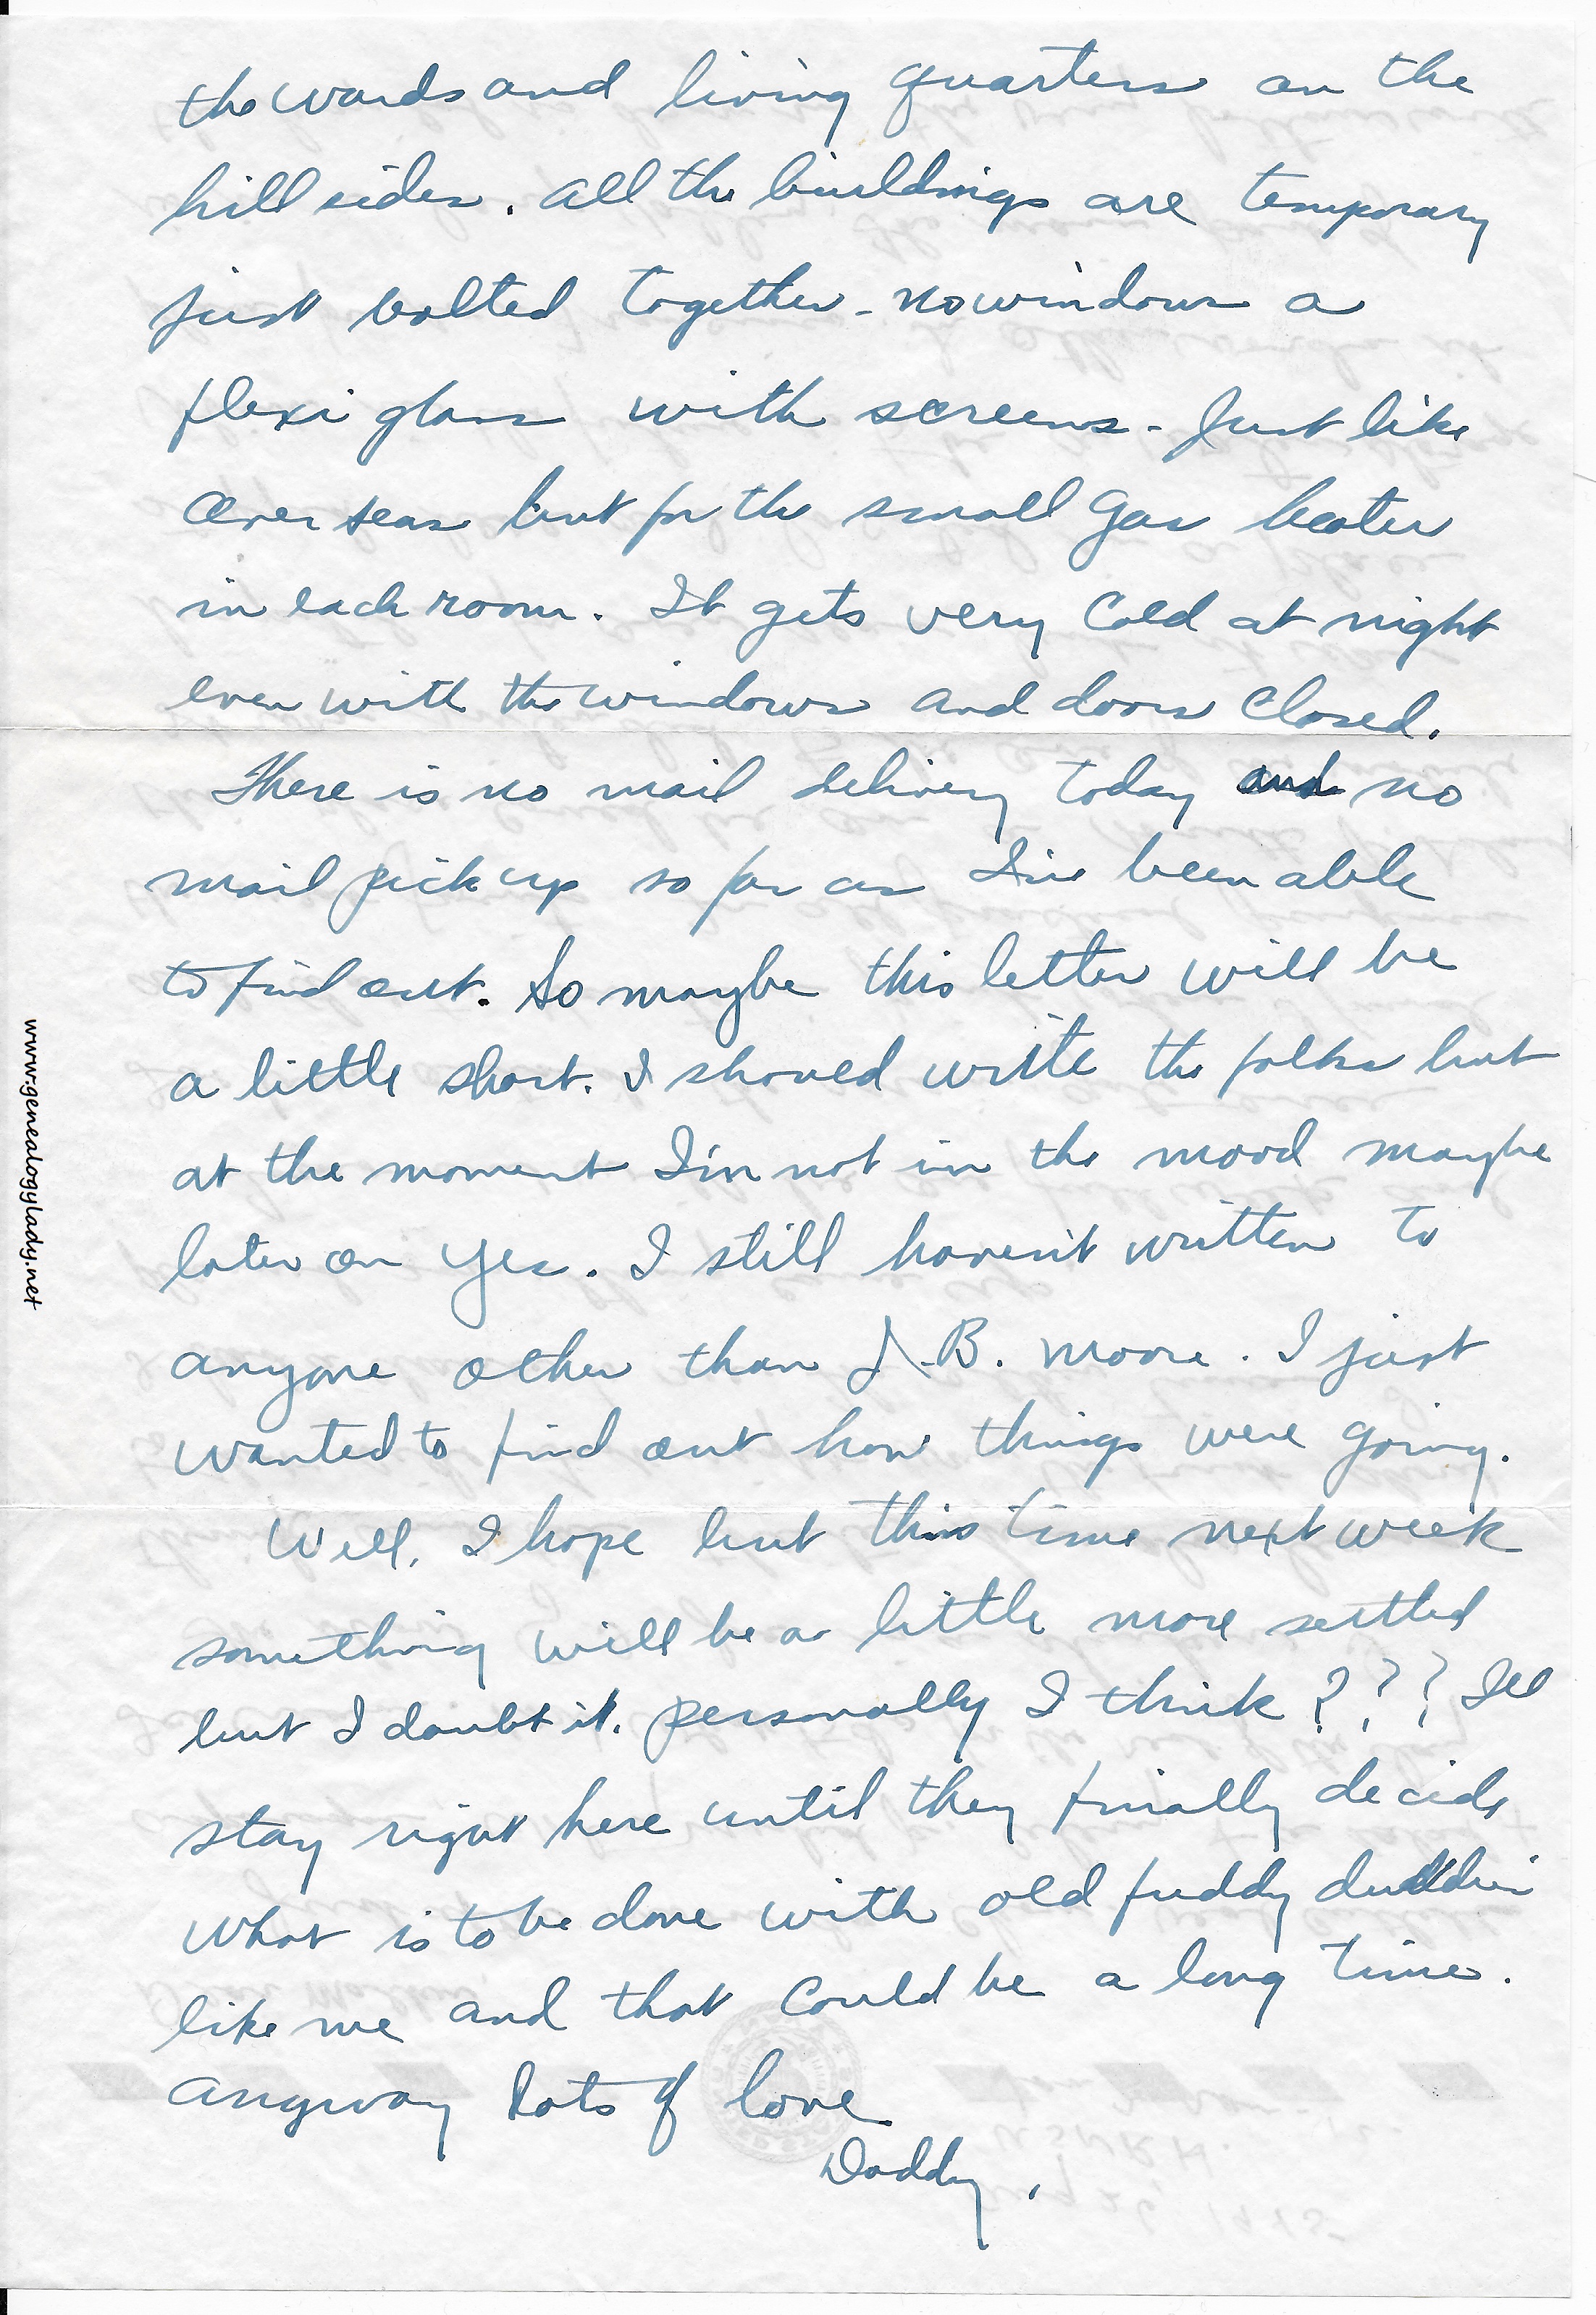 the wards and living quarters on the
hill sides. All the buildings are temporary
just bolted together - no windows a
flexi glass with screens - Just like
Over seas but for the small gas heater
in each room. It gets very cold at night
even with the windows and doors closed.
There is no mail delivery today and no
mail pick up so far as I've been able
to find out. So maybe this letter will be
a little short. I should write the folks but
at the moment I'm not in the mood maybe
later on yes. I still haven't written to
anyone other than J.B. Moore. I just
wanted to find out how things were going.
Well, I hope but this time next week
something will be a little more settled
but I doubt it. Personally I think ??? I'll
stay right here until they finally decide
what is to be done with old fuddy duddies
like me and that could be a long time.
Anyway Lots of love
Daddy,
www.genealogylady.net